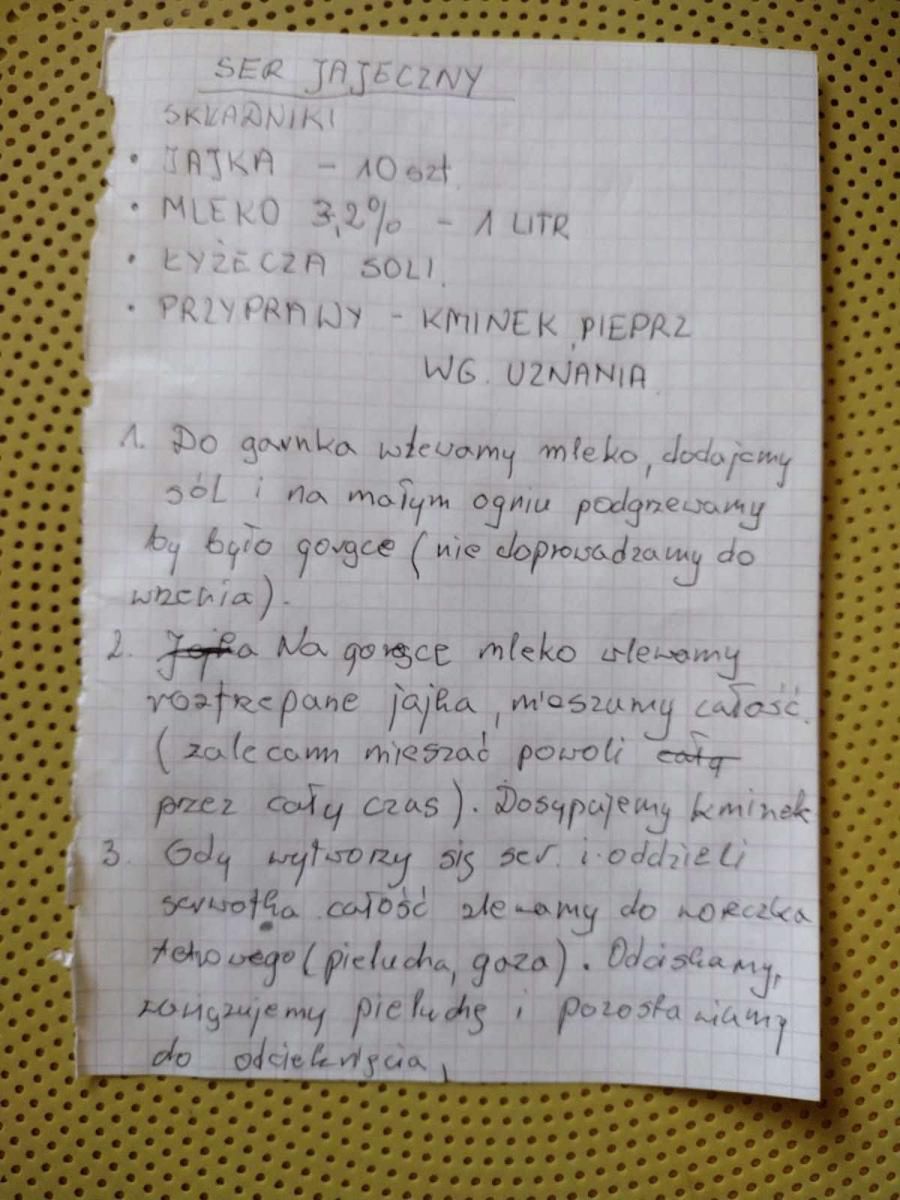 SER JAJECZNY
SKŁADNIKI
• JAJKA – 10 szt.
• MLEKO 3,2% – 1 LITR
• ŁYŻECZA SOLI
• PRZYPRAWY – KMINEK, PIEPRZ
WG. UZNANIA
1. Do garnka wlewamy mleko, dodajemy
sól i na małym ogniu podgrzewamy
by było gorące (nie doprowadzamy do
wrzenia).
2. Jajka Na gorące mleko wlewamy
roztrzepane jajka, mieszamy całość.
(zalecam mieszać powoli całą
przez cały czas). Dosypujemy kminek
3. Gdy wytworzy się ser i oddzieli
serwotka całość zlewamy do woreczka
tetrowego (pielucha, gaza). Odciskamy,
związujemy pieluchę i pozostawiamy
do odcieknięcia,